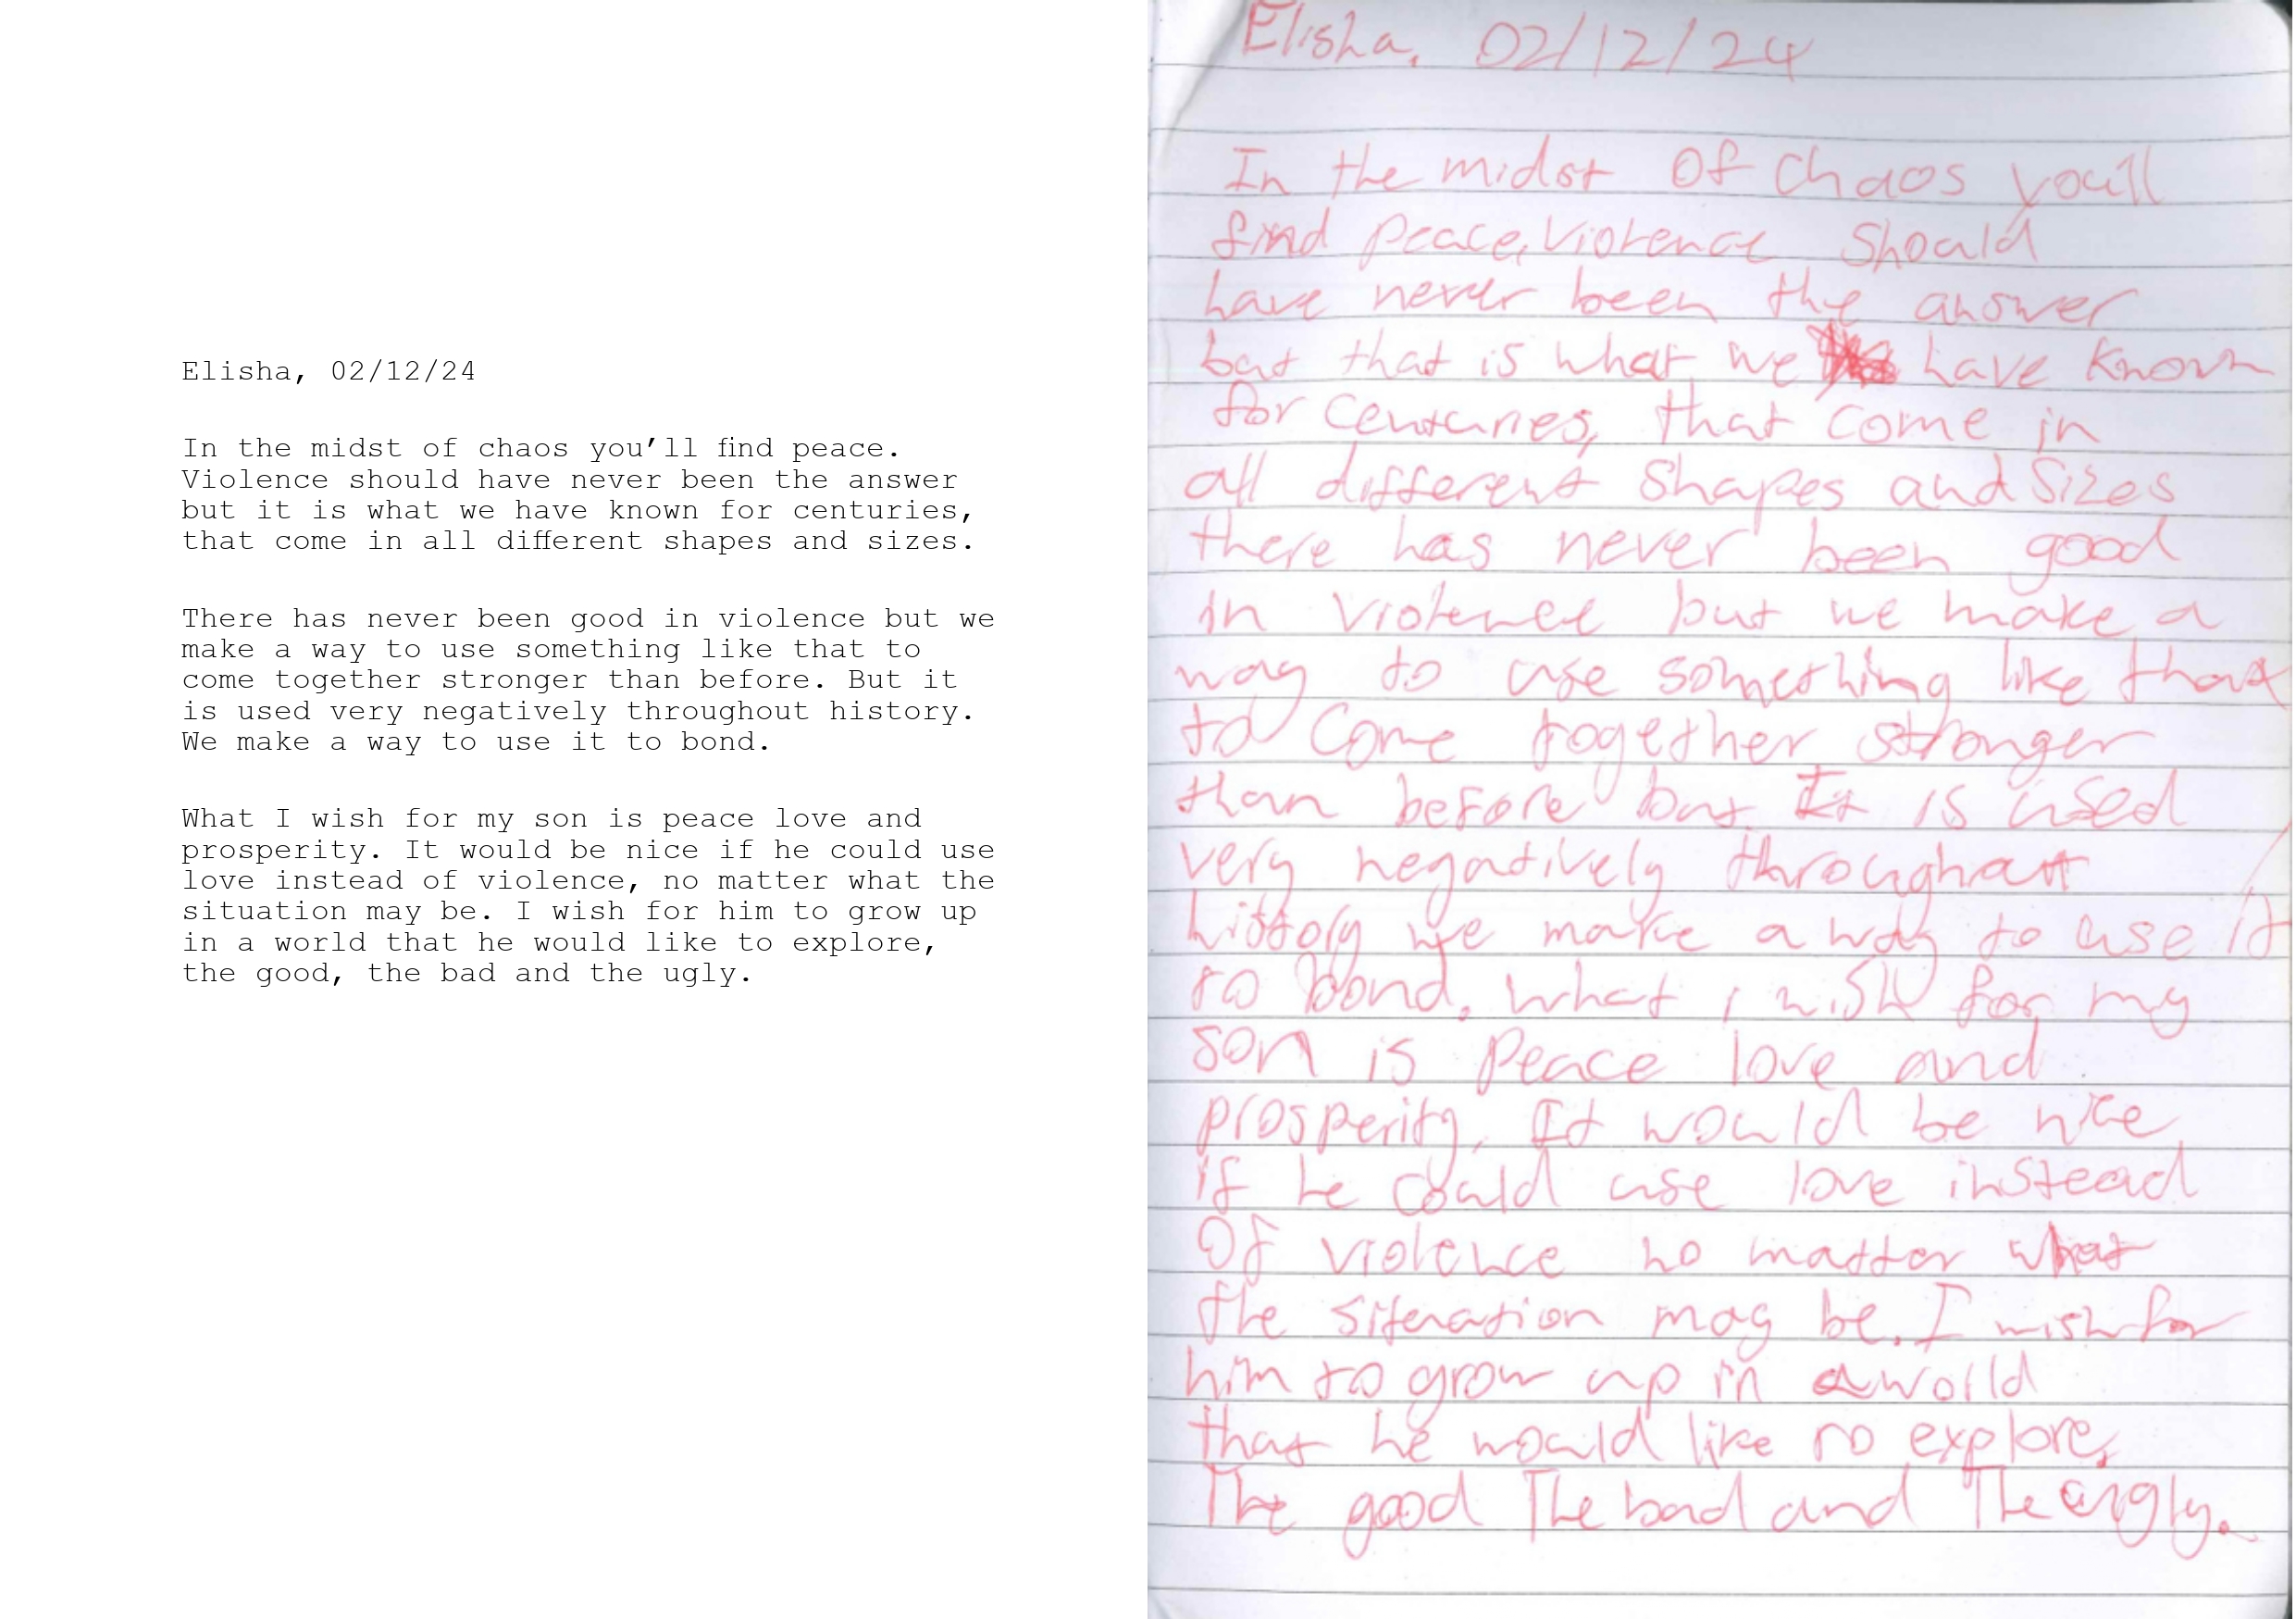 Elisha, 02/12/24
In the midst of chaos you’ll find peace.
Violence should have never been the answer
but it is what we have known for centuries,
that come in all different shapes and sizes.
There has never been good in violence but we
make a way to use something like that to
come together stronger than before. But it
is used very negatively throughout history.
We make a way to use it to bond.
What I wish for my son is peace love and
prosperity. It would be nice if he could use
love instead of violence, no matter what the
situation may be. I wish for him to grow up
in a world that he would like to explore,
the good, the bad and the ugly.
Elisha, 02/12/24
In the midst Of Chaos you'll
find peace, Violence Should
have never been the answer
but that is what we have known
for centuries, that come in
all different Shapes and Sizes
there has never been good
in violence but we make a
way to use something like that
to Come together stronger
than before but It is used
very negatively throughout
history we make a way to use it
to bond. What i wish for my
son is peace love and
prosperity. It would be nice
if he could use love instead
Of violence no matter what
the situation may be. I wish for
him to grow up in a world
that he would like to explore,
The good The bad and The ugly.